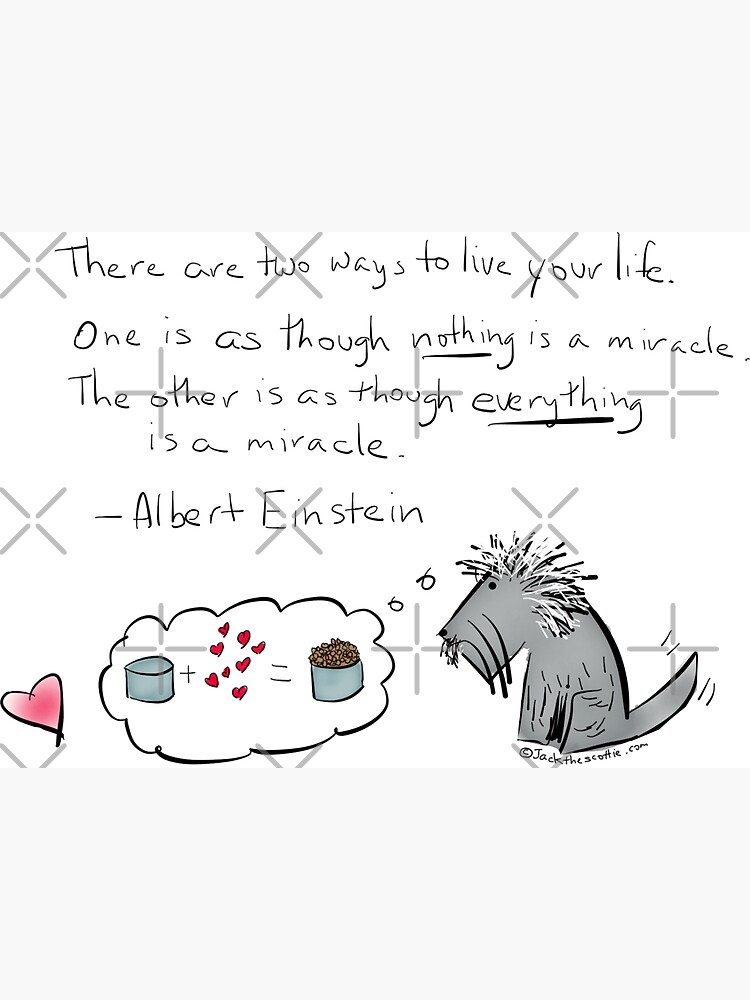 There are two ways to live your life.
One is as though nothing is a miracle.
The other is as though everything
is a miracle.
– Albert Einstein
+ =
©Jackthescottie.com